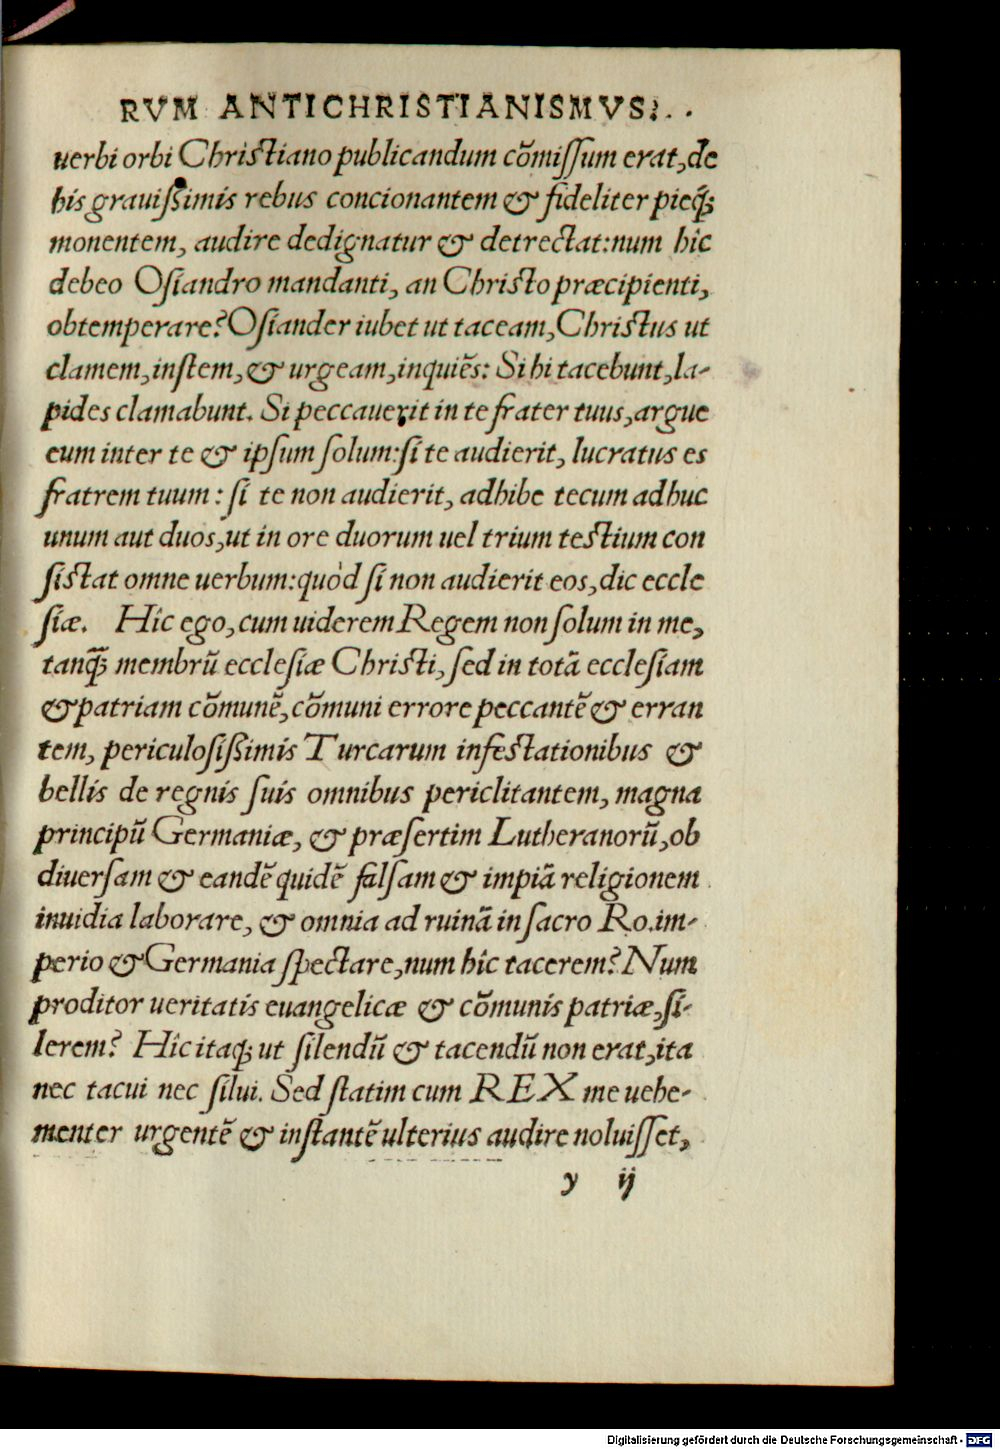 RVM ANTICHRISTIANISMVS. . .
uerbi orbi Christiano publicandum cõmissum erat, de
his grauißimis rebus concionantem & fideliter pieq́;
monentem, audire dedignatur & detrectat: num hîc
debeo Osiandro mandanti, an Christo præcipienti,
obtemperare? Osiander iubet ut taceam, Christus ut
clamem, instem, & urgeam, inquiẽs: Si hi tacebunt, la-
pides clamabunt. Si peccauerit in te frater tuus, argue
eum inter te & ipsum solum: si te audierit, lucratus es
fratrem tuum: si te non audierit, adhibe tecum adhuc
unum aut duos, ut in ore duorum uel trium testium con
sistat omne uerbum: quòd si non audierit eos, dic eccle
siæ. Hîc ego, cum uiderem Regem non solum in me,
tanq̃; membrũ ecclesiæ Christi, sed in totã ecclesiam
& patriam cõmunẽ, cõmuni errore peccantẽ & erran
tem, periculosißimis Turcarum infestationibus &
bellis de regnis suis omnibus periclitantem, magna
principũ Germaniæ, & præsertim Lutheranorũ, ob
diuersam & eandẽ quidẽ falsam & impiã religionem
inuidia laborare, & omnia ad ruinã in sacro Ro. im-
perio & Germania spectare, num hîc tacerem? Num
proditor ueritatis euangelicæ & cõmunis patriæ, si-
lerem? Hîc itaq; ut silendũ & tacendũ non erat, ita
nec tacui nec silui. Sed statim cum REX me uehe-
menter urgentẽ & instantẽ ulterius audire noluisset,
y ij
Digitalisierung gefördert durch die Deutsche Forschungsgemeinschaft - DFG